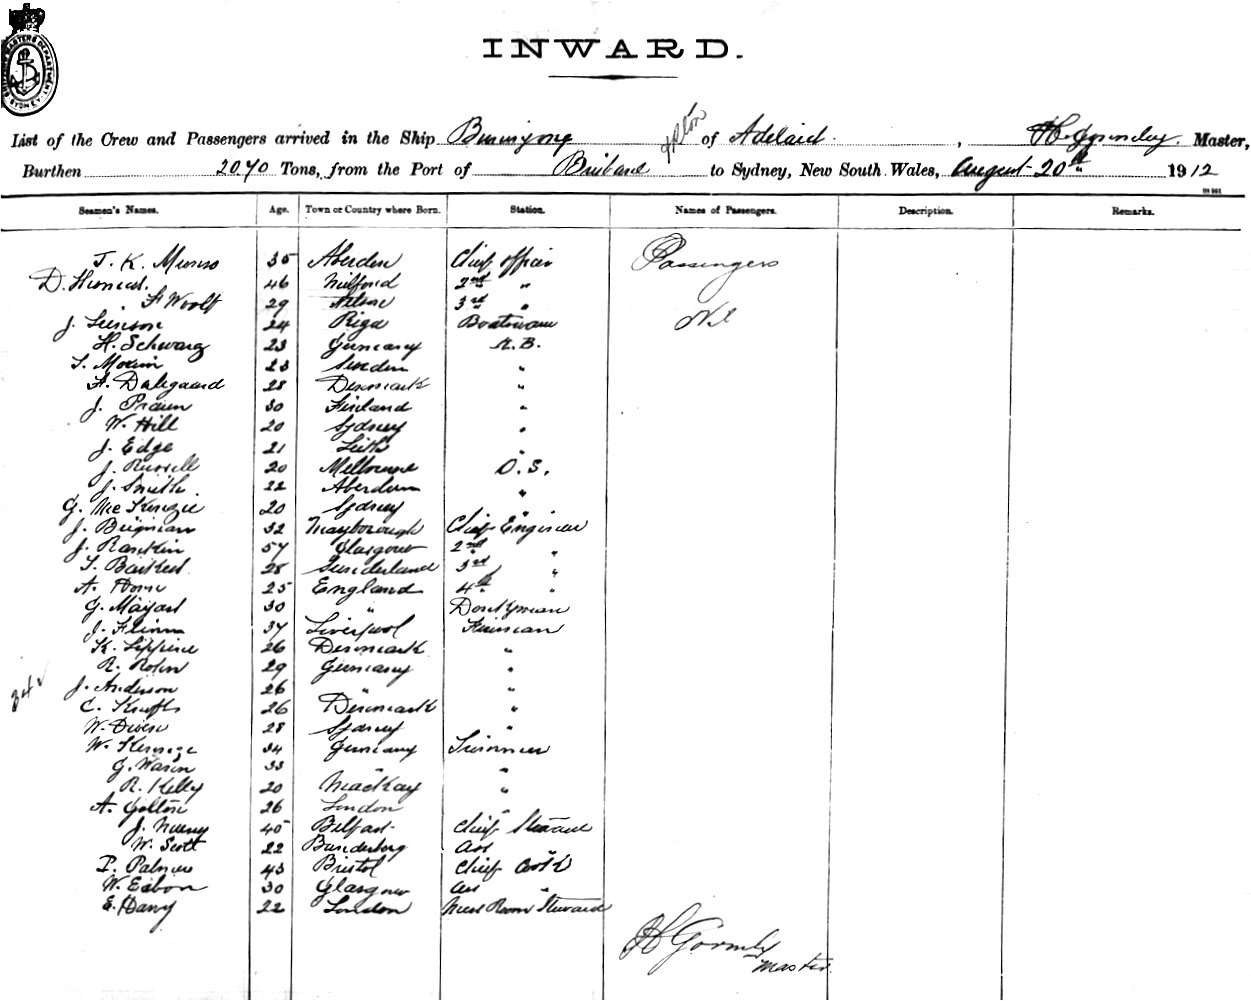 INWARD.
List of the Crew and Passengers arrived in the Ship Buninyong of Adelaid, H. Gormley Master,
Burthen 2070 Tons, from the Port of Brisbane to Sydney, New South Wales, August 20th 1912
Seamen's Names. Age. Town or Country where Born. Station. Names of Passengers. Description. Remarks.
J. K. Munro 35 Aberdeen Chief Officer Passengers
D. 46 Milford 2nd "
F Woolf 29 Nelson 3rd "
J. 24 Riga Boatswain Nil
H. Schwarz 23 Germany A.B.
23 Sweden "
A. Dalegaard 28 Denmark "
J. 30 Finland "
W. Hill 20 Sydney "
J. Edge 21 Leith "
J. Russell 20 Melbourne O.S.
J. Smith 22 Aberdeen "
G. McKenzie 20 Sydney "
J. 32 Maryborough Chief Engineer
J. Rankin 57 Glasgow 2nd "
28 Sunderland 3rd "
A. 25 England 4th "
G. 30 " Donkeyman
J. Flinn 37 Liverpool Fireman
K. 26 Denmark "
R. 29 Germany "
J. Anderson 26 " "
C. 26 Denmark "
W. 28 Sydney "
W. 34 Germany Trimmer
G. 33 " "
R. Kelly 20 Mackay "
A. Golton 26 London "
J. 40 Belfast Chief Steward
W. Scott 22 Bundaberg Ass "
P. Palmer 43 Bristol Chief Cook
W. 30 Glasgow Ass "
E. 22 London Mess Room Steward
34
H Gormley
Master